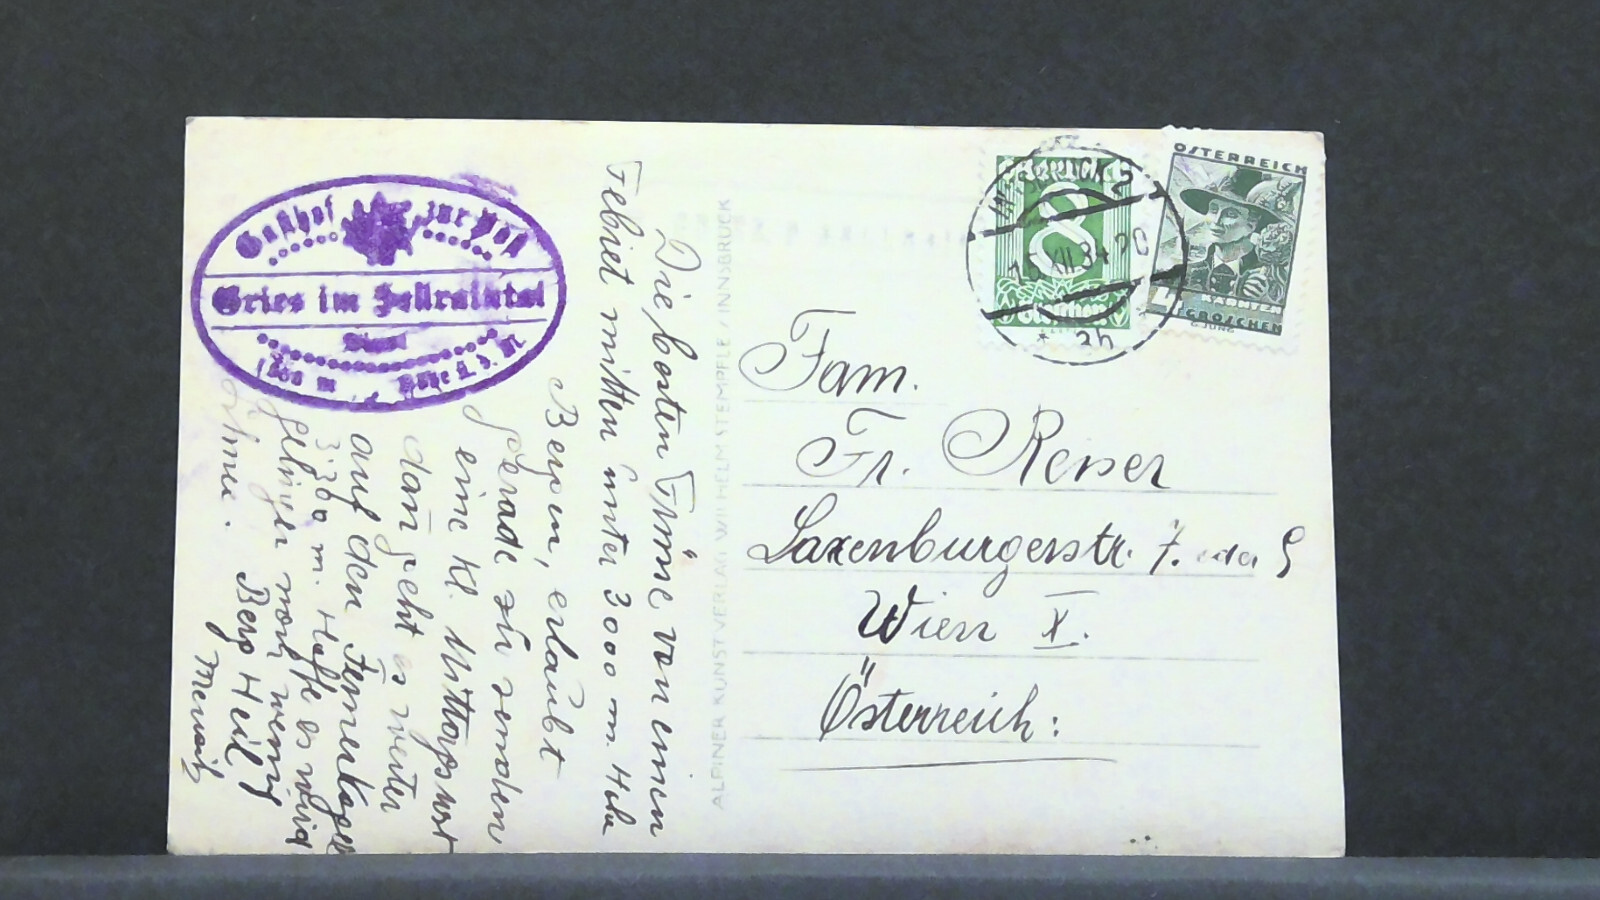 Gasthof zur Post
Gries im Sellraintal
Tirol
m Höhe ü. d. M.
Die besten Grüße von einem
Gebiet mitten unter 3000 m. Hohe
Bergen, erlaubt
gerade zu senden,
eine kl. Mittagsrast
dann geht es weiter
auf den Fernerkogel
3.300 m. Hoffe es wird
gelingen wenig
Berg Heil!
ALPINER KUNSTVERLAG WILHELM STEMPFLE / INNSBRUCK
INNSBRUCK 2
15. XII. 34 20
* 2b
8
Groschen
ÖSTERREICH
4
KÄRNTEN
GROSCHEN
Fam.
Fr. Reiser
Laxenburgerstr. 7. oder 9
Wien X.
Österreich: